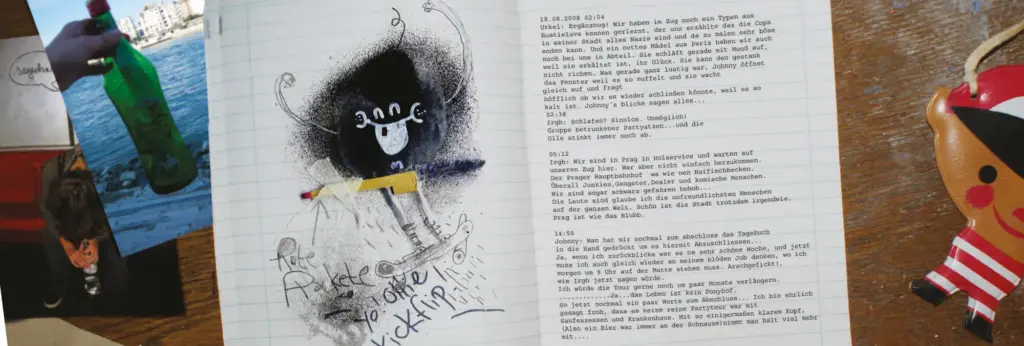 18.08.2008 02:04
Urkel: Ergänznug! Wir haben im Zug noch ein Typen aus
Buatislava kennen gerlernt. der uns erzählte das die Cops
in seiner Stadt alles Nazis sind und da zu malen sehr böse
enden kann. Und ein nettes Mädel aus Paris haben wir auch
noch bei uns in Abteil. Sie schläft gerade mit Mund auf,
weil sie erkältet ist, ihr Glück. Sie kann den gestank
nicht richen. Was gerade ganz lustig war, Johnny öffnet
das Fenster weil es so muffelt und sie wacht
gleich auf und fragt
höfflich ob wir es wieder schließen könnte, weil es so
kalt ist. Johnny's blicke sagen alles...
02:38
Irgh: Schlafen? Sinnlos. Unmöglich!
Gruppe betrunkener Partyatzen...und die
Olle stinkt immer noch ab.
05:12
Irgh: Wir sind in Prag in Holservice und warten auf
unseren Zug hier. War aber nicht einfach herzukommen.
Der Prager Hauptbahnhof wa wie nen Haifischbecken.
Überall Junkies,Gangster,Dealer und komische Menschen.
Wir sind sogar schwarz gefahren hohoh...
Die Leute sind glaube ich die unfreundlichsten Menschen
auf der ganzen Welt. Schön ist die Stadt trotzdem irgendwie.
Prag ist wie das Blubb.
14:55
Johnny: Man hat mir nochmal zum abschluss das Tagebuch
in die Hand gedrückt um es hiermit Abzuschliessen...
Ja, wenn ich zurückblicke war es ne sehr schöne Woche, und jetzt
muss ich auch gleich wieder an meinem blöden Job denken, wo ich
morgen um 9 Uhr auf der Matte stehen muss. Arschgefickt!,
wie Irgh jetzt sagen würde.
Ich würde die Tour gerne noch um paar Monate verlängern.
.............Ja...das Leben ist kein Ponyhof.
So jetzt nochmal ein paar Worte zum Abschluss... Ich bin ehrlich
gesagt froh, dass es keine reine Partytour war mit
Saufexzessen und Krankenhaus. Mit so einigermaßen klarem Kopf,
(Also ein Bier war immer an der Schnauze)nimmt man halt viel mehr
mit....
Yo
kickflip!